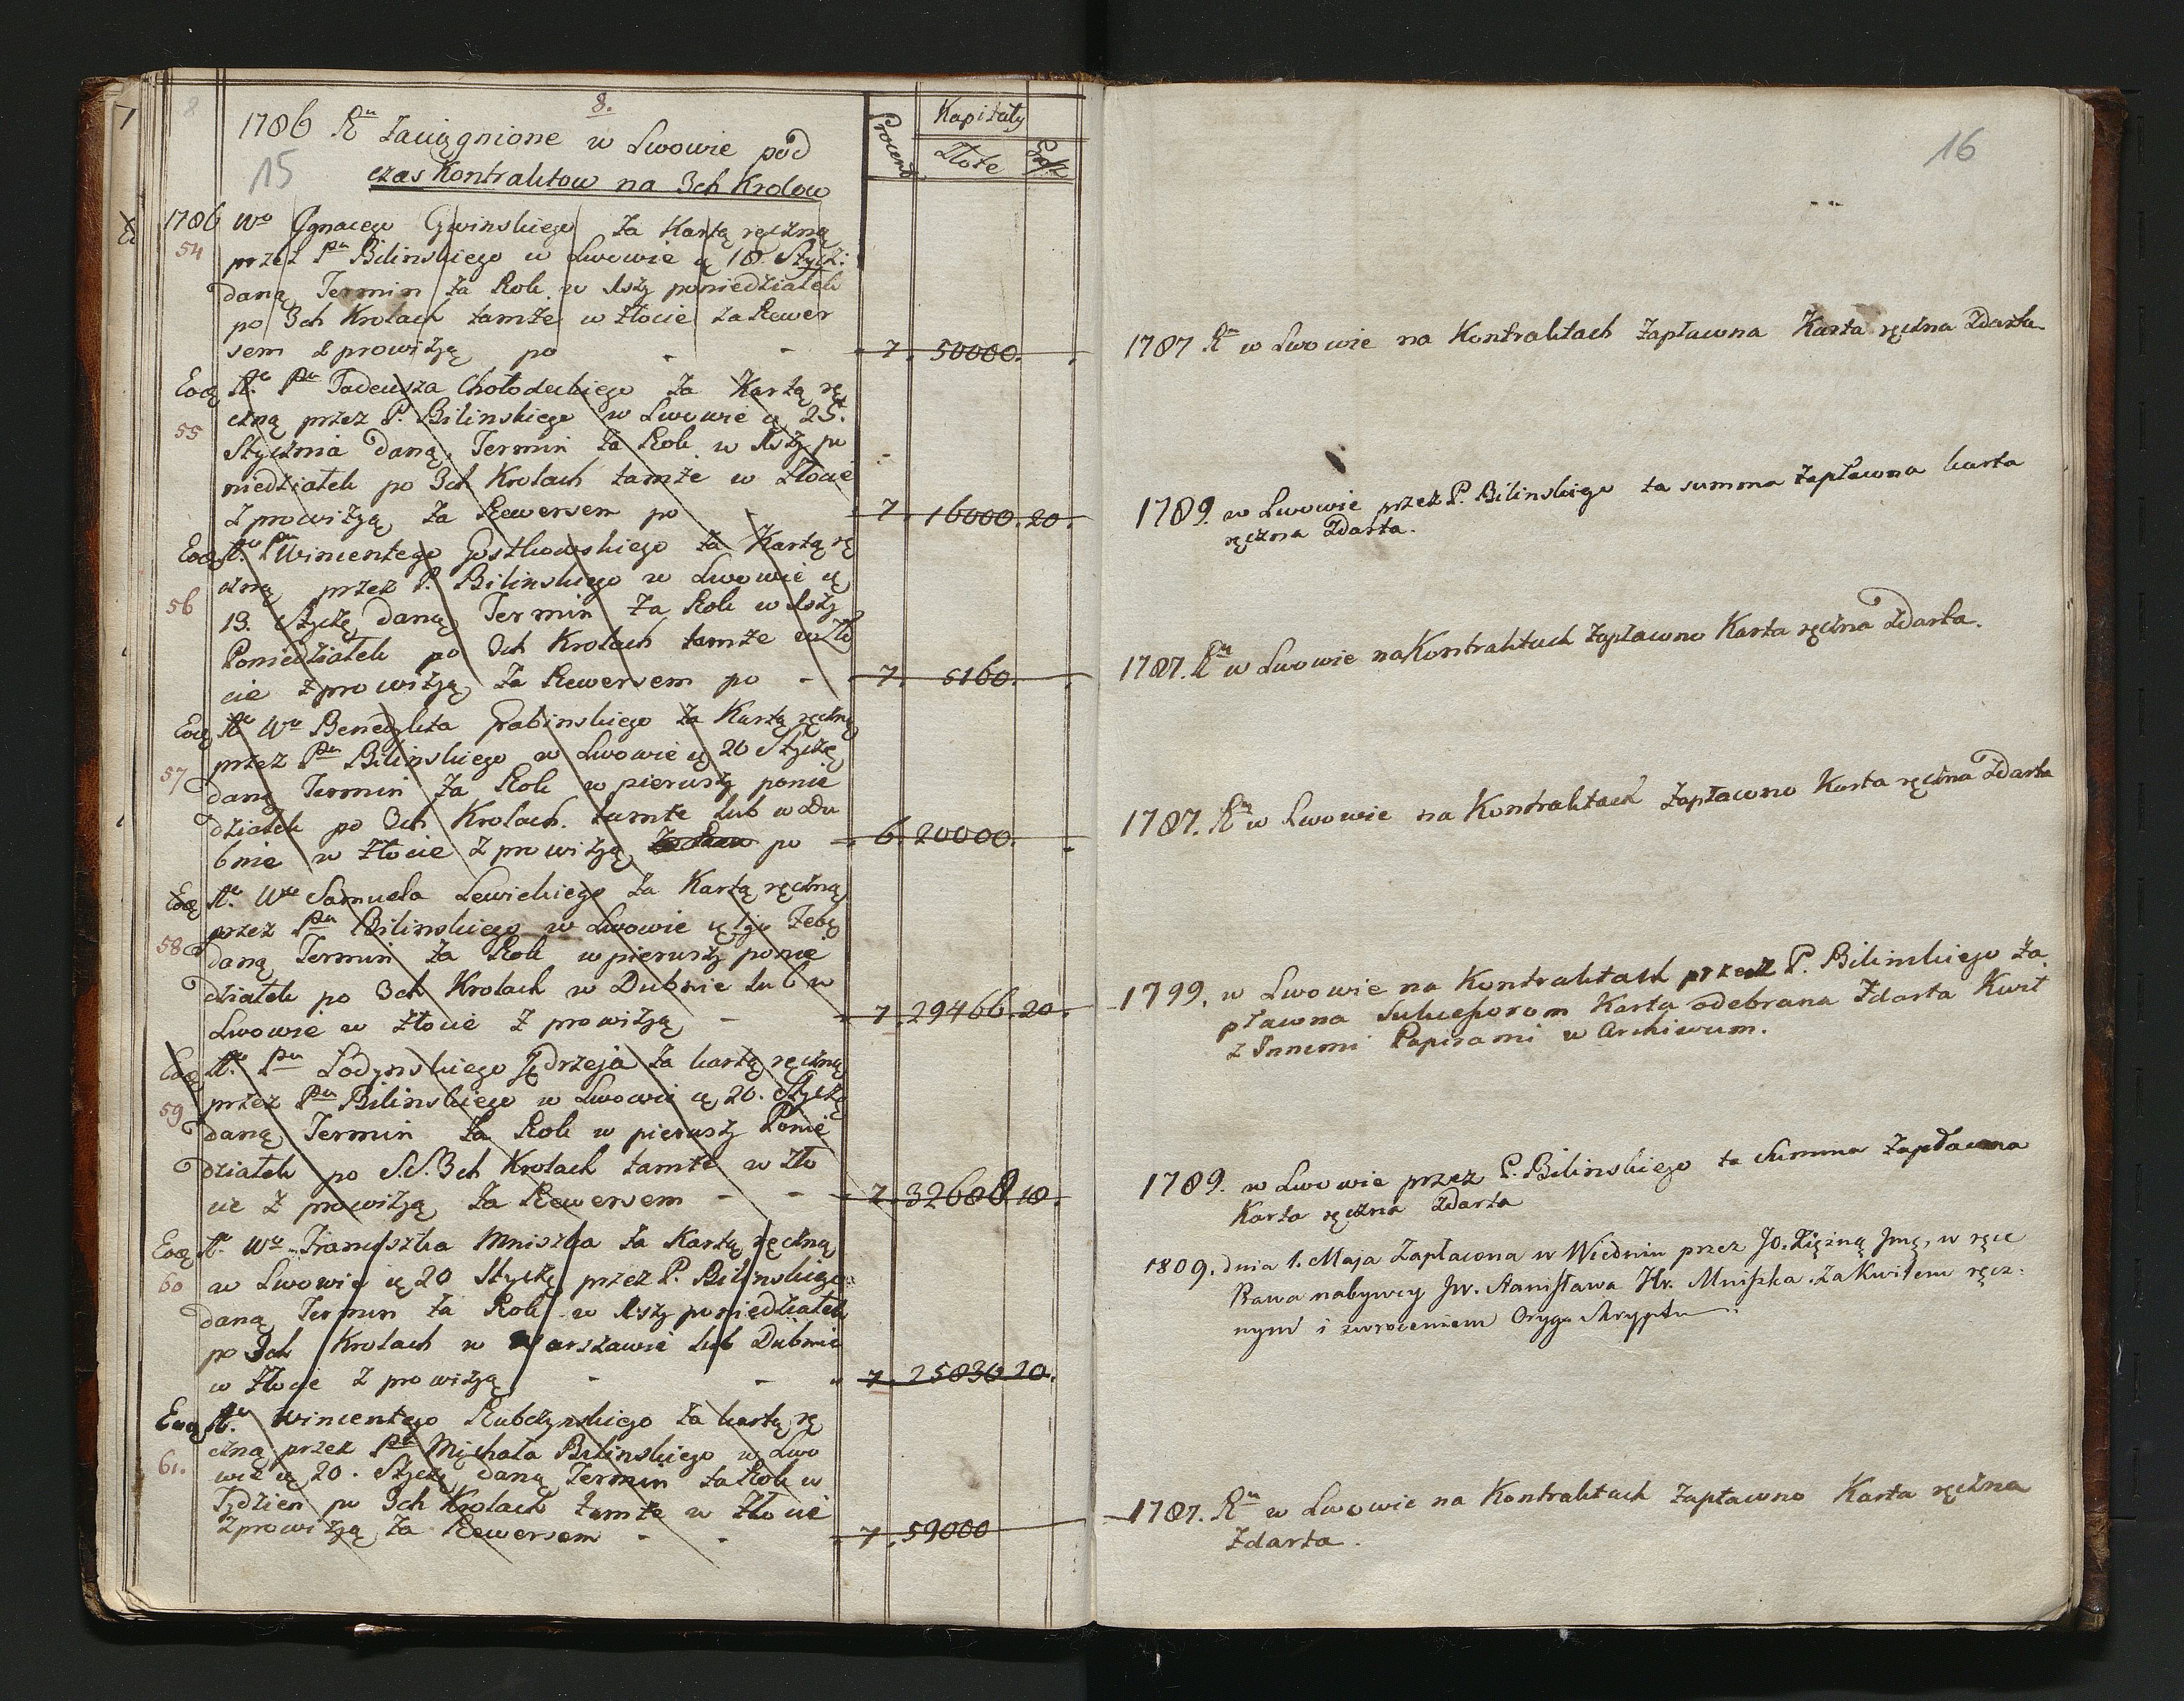 8
8.
1786 Ru Zaciągnione w Lwowie pod
15
czas Kontraktow na 3ch Krolow
Procent
Kapitały
Złote
1786 Wo Ignacego Gwinskiego Za Kartą ręczną
54
przez Pa Bilinskiego w Lwowie q 18. Stycz:
daną Termin Za Rok w Iszy poniedziałek
po 3ch Krolach tamże w złocie za Rewer
sem z prowizyą po - - 7. 50000.
Eoq Ao Pa Tadeusza Chołodeckiego Za Kartą rę
55
czną przez P. Bilinskiego w Lwowie q 25.
Stycznia daną, Termin Za Rok w Iszy po
niedziałek po 3ch Krolach tamże w Złocie
z prowizyą Za Rewersem po - 7. 16000. 20.
Eoq Ao Pa Wincentego Gostkowskiego Za Kartą rę
czną przez P. Bilinskiego w Lwowie q
56
19. Stycz. daną Termin Za Rok w Iszy
Poniedziałek po 3ch Krolach tamże w Zło
cie z prowizyą Za Rewersem po - 7. 6160.
Eoq Ao Wo Benedykta Grabinskiego Za Kartą ręczną
przez Pa Bilinskiego w Lwowie q 20 Stycz.
57
daną Termin Za Rok w pierwszy ponie
działek po 3ch Krolach tamże lub w Du
bnie w Złocie z prowizyą po - 6. 20000.
Eoq Ao Wo Samuela Lewickiego Za Kartą ręczną
przez Pa Bilinskiego w Lwowie q 1go Feb.
58
daną Termin Za Rok w pierwszy ponie
działek po 3ch Krolach w Dubnie lub w
Lwowie w złocie z prowizyą - 7. 29466. 20.
Eoq Ao Pa Łodynskiego Jędrzeja Za kartą ręczną
59
przez Pa Bilinskiego w Lwowie q 20. Stycz.
daną Termin Za Rok w pierwszy Ponie
działek po S.S. 3ch Krolach tamże w Zło
cie z prowizyą Za Rewersem - - 7. 32688 10.
Eoq Ao Wo Franciszka Mniszka Za Kartą ręczną
60
w Lwowie q 20 Stycz. przez P. Bilinskiego
daną Termin Za Rok w Iszy poniedziałek
po 3ch Krolach w Warszawie lub Dubnie
w Złocie z prowizyą - - 7. 25836 20.
Eoq Ao Wincentego Rubczynskiego Za kartą rę
czną przez Pa Michała Bilinskiego w Lwo
61.
wie q 20. Stycz. daną Termin Za Rok w
Tydzien po 3ch Krolach tamże w Złocie
z prowizyą Za Rewersem - - 7. 59000
16
1787 Ru w Lwowie na Kontraktach Zapłacona Karta ręczna Zdarta
1789. w Lwowie przez P. Bilinskiego ta summa Zapłacona karta
ręczna Zdarta.
1787. Ru w Lwowie na Kontraktach Zapłacono Karta ręczna Zdarta.
1787. Ru w Lwowie na Kontraktach Zapłacono Karta ręczna Zdarta
1799. w Lwowie na Kontraktach przez P. Bilinskiego Za
płacona Sukcessorom Karta odebrana Zdarta Kwit
z Innemi Papirami w Archiwum.
1789. w Lwowie przez P. Bilinskiego ta Summa Zapłacona
Karta ręczna Zdarta
1809. dnia 1. Maja Zapłacona w Wiedniu przez JO. Xiężną Jmę, w ręce
Prawa nabywcy JW. Stanisława Hr. Mniszka. Za Kwitem ręcz:
nym i zwroceniem Oryg. Skryptu
1787. Ru w Lwowie na Kontraktach Zapłacono Karta ręczna
Zdarta.